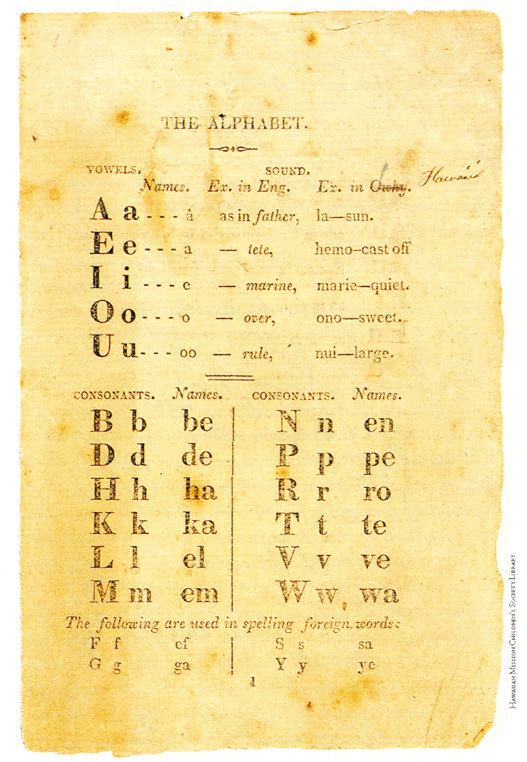 THE ALPHABET.
VOWELS. SOUND.
Names. Ex. in Eng. Ex. in Owhy. Hawaii
A a - - - á as in father, la—sun.
E e - - - a — tete, hemo—cast off
I i - - - e — marine, marie—quiet.
O o - - - o — over, ono—sweet.
U u - - - oo — rule, nui—large.
CONSONANTS. Names. CONSONANTS. Names.
B b be N n en
D d de P p pe
H h ha R r ro
K k ka T t te
L l el V v ve
M m em W w, wa
The following are used in spelling foreign words:
F f ef S s sa
G g ga Y y ye
1
HAWAIIAN MISSION CHILDREN'S SOCIETY LIBRARY